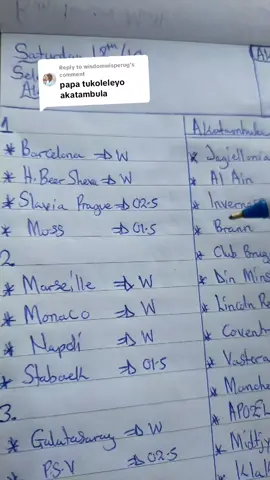 Saturday 18th/10
Reply to wisdomwisperug's comment
papa tukoleleyo akatambula
1
* Barcelona => W
* H. Beer Sheva => W
* Slavia Prague => O2.5
* Moss => O1.5
2.
* Marseille => W
* Monaco => W
* Napoli => W
* Stabaek => O1.5
3.
* Galatasaray => W
* P.S.V => O2.5
* Jagiellonia
* Al Ain
* Brann
* Club Brug
* Din Mins
* Lincoln Re
* Covent
* Vastera
* Manche
* APOEL
* Midtjy
* Klak